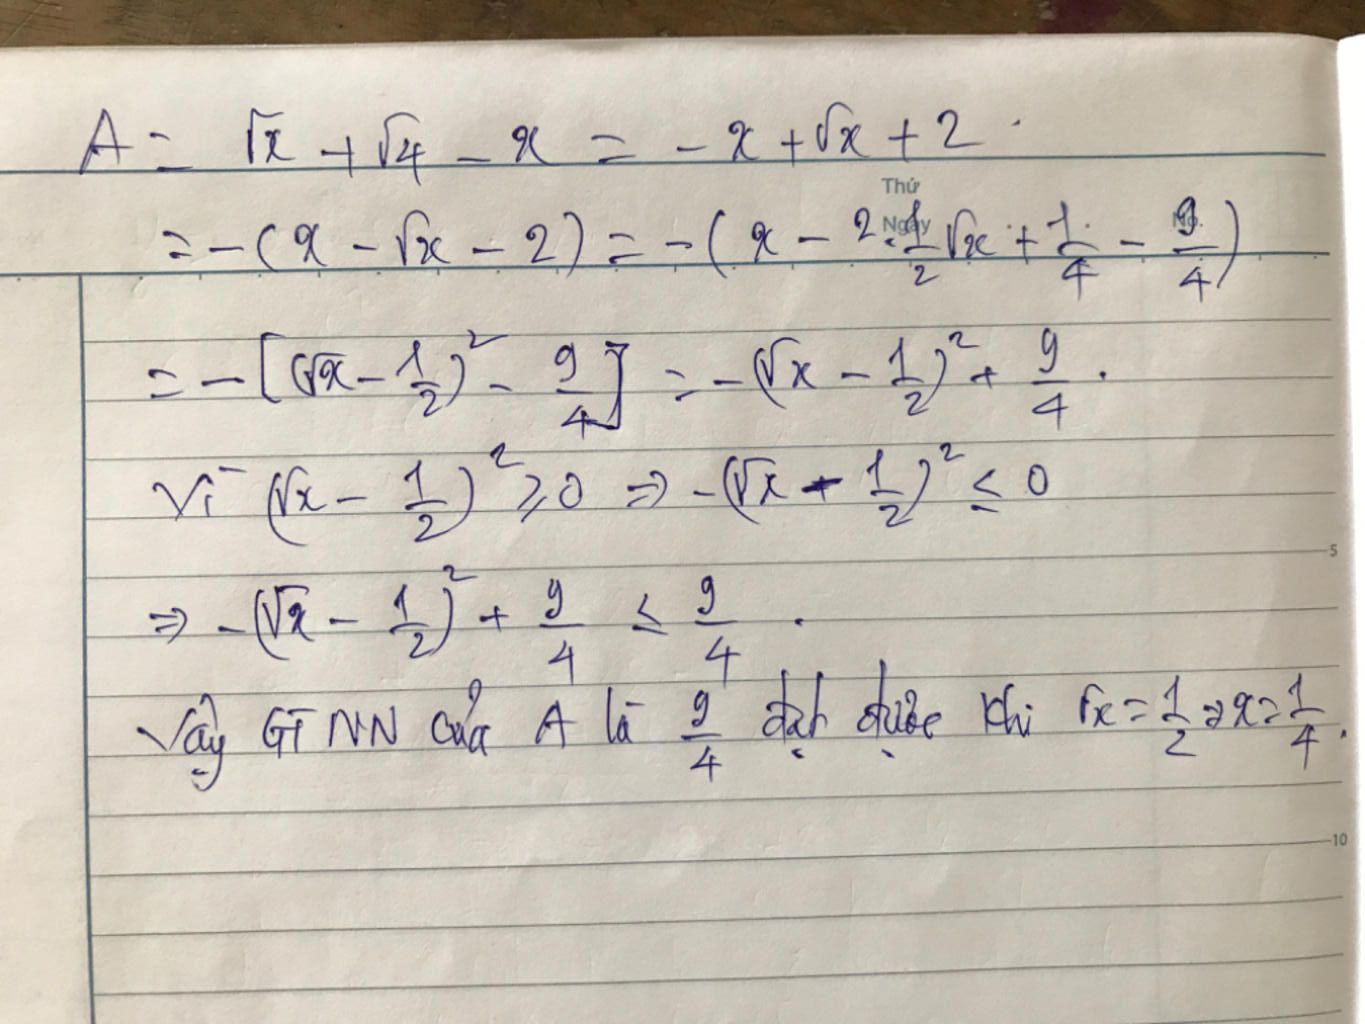 A = √x + √4 - x = - x + √x + 2 .
Thứ
Ngày No.
= - ( x - √x - 2 ) = - ( x - 2 . 1/2 √x + 1/4 - 9/4 )
= - [ (√x - 1/2)² - 9/4 ] = - (√x - 1/2)² + 9/4 .
Vì (√x - 1/2)² ≥ 0 ⇒ - (√x - 1/2)² ≤ 0
5
⇒ - (√x - 1/2)² + 9/4 ≤ 9/4 .
Vậy GTNN của A là 9/4 đạt được khi √x = 1/2 ⇒ x = 1/4 .
10